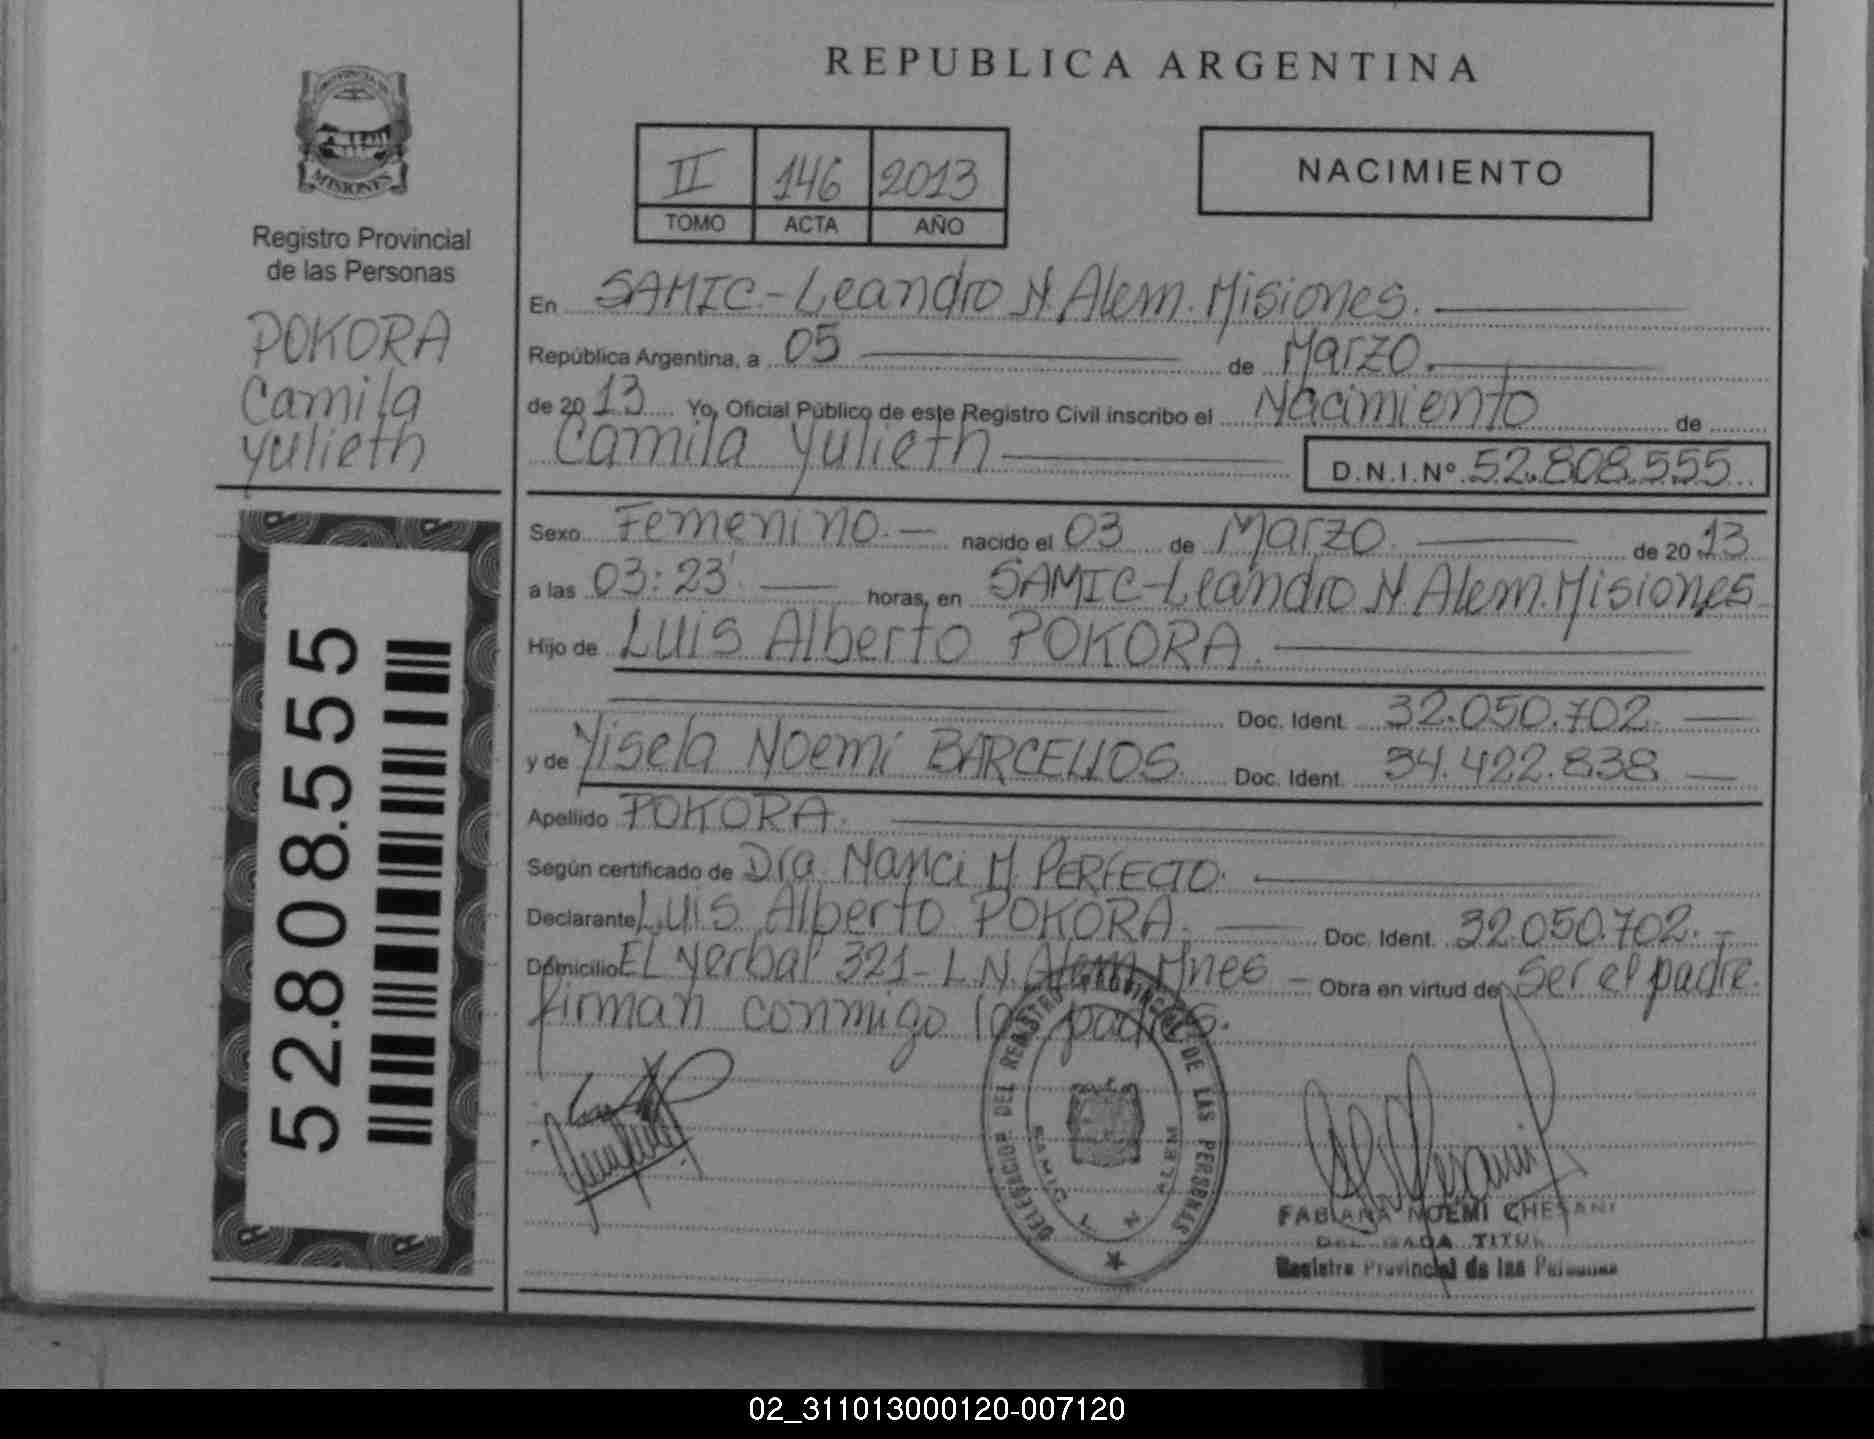 REPUBLICA ARGENTINA
PROVINCIA DE
MISIONES
Registro Provincial
de las Personas
POKORA
Camila
Yulieth
52.808.555
II 146 2013
TOMO ACTA AÑO
NACIMIENTO
En SAMIC.- Leandro N. Alem. Misiones.
República Argentina, a 05 de Marzo.
de 2013 Yo, Oficial Público de este Registro Civil inscribo el Nacimiento de
Camila Yulieth D.N.I.Nº 52.808.555
Sexo Femenino.- nacido el 03 de Marzo. de 2013
a las 03:23' horas, en SAMIC-Leandro N. Alem. Misiones
Hijo de LUIS Alberto POKORA.
Doc. Ident. 32.050.702
y de Yisela Noemi BARCELLOS. Doc. Ident. 34.422.838
Apellido POKORA.
Según certificado de Dra. Nanci M. PERFECTO.
Declarante LUIS Alberto POKORA. Doc. Ident. 32.050.702.-
Domicilio EL Yerbal 321- L.N. Alem. Mnes - Obra en virtud de Ser el padre.
firman conmigo los padres.
DELEGACION DEL REGISTRO PROVINCIAL DE LAS PERSONAS
SAMIC L. N. ALEM
FABIANA NOEMI CHESANI
Registro Provincial de las Personas
02_311013000120-007120